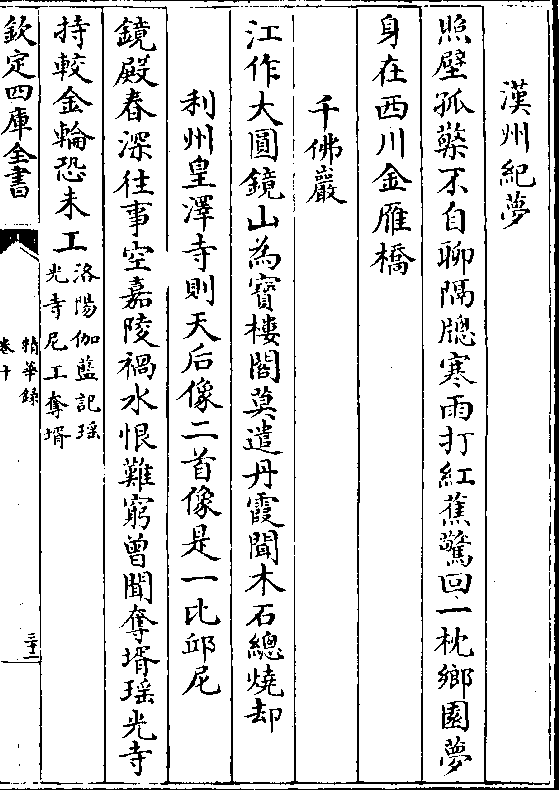 漢州紀夢
照壁孤檠不自聊隔牕寒雨打紅蕉驚回一枕鄉園夢
身在西川金雁橋
千佛巖
江作大圓鏡山為寶樓閣莫遣丹霞聞木石總燒却
利州皇澤寺則天后像二首像是一比邱尼
鏡殿春深往事空嘉陵禍水恨難窮曾聞奪壻瑶光寺
持較金輪恐未工洛陽伽藍記瑶
光寺尼工奪壻
欽定四庫全書
精華錄
卷十
三十二